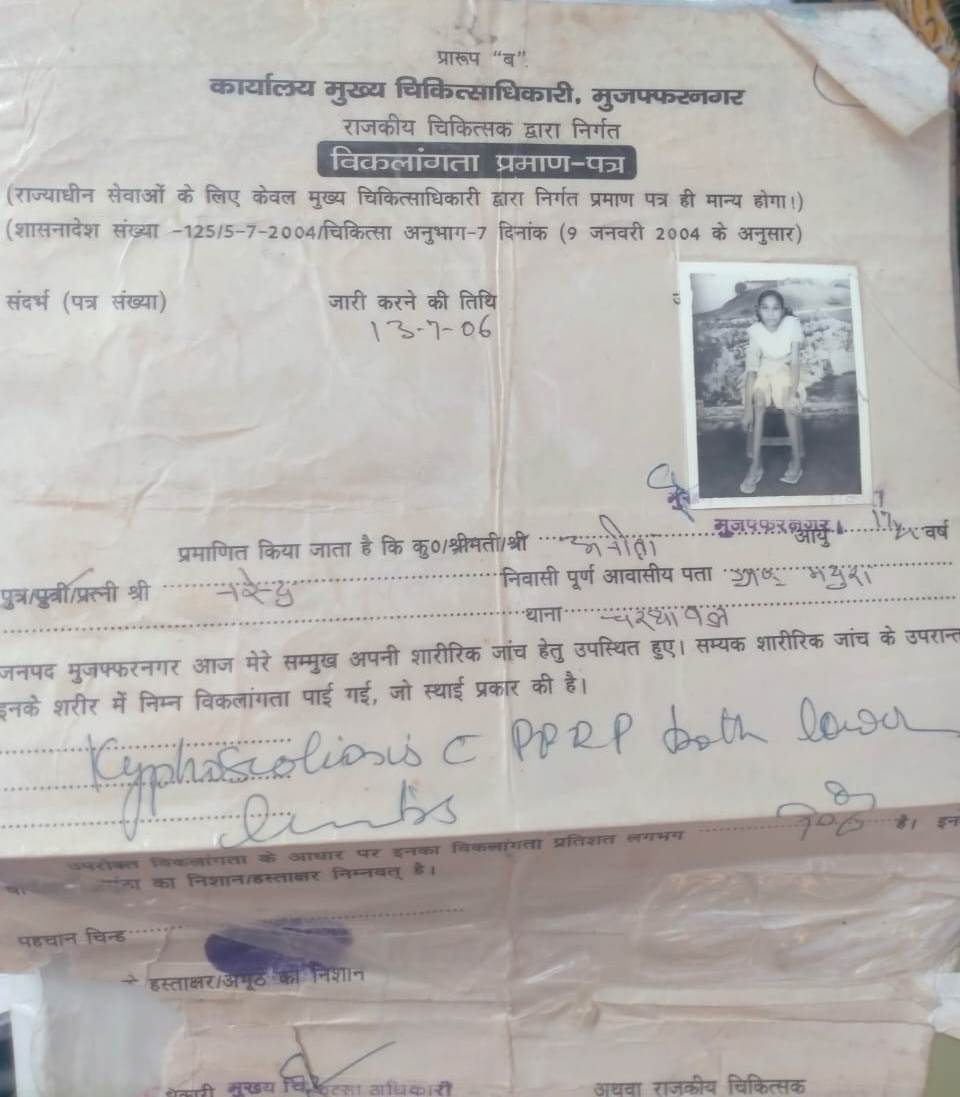 प्रारूप “ब”
कार्यालय मुख्य चिकित्साधिकारी, मुजफ्फरनगर
राजकीय चिकित्सक द्वारा निर्गत
विकलांगता प्रमाण-पत्र
(राज्याधीन सेवाओं के लिए केवल मुख्य चिकित्साधिकारी द्वारा निर्गत प्रमाण पत्र ही मान्य होगा।)
(शासनादेश संख्या -125/5-7-2004/चिकित्सा अनुभाग-7 दिनांक (9 जनवरी 2004 के अनुसार)
संदर्भ (पत्र संख्या) जारी करने की तिथि
13-7-06
मुजफ्फरनगर।
प्रमाणित किया जाता है कि कु०/श्रीमती/श्री आयु वर्ष
पुत्र/पुत्री/पत्नी श्री निवासी पूर्ण आवासीय पता
थाना चरथावल
जनपद मुजफ्फरनगर आज मेरे सम्मुख अपनी शारीरिक जांच हेतु उपस्थित हुए। सम्यक शारीरिक जांच के उपरान्त
इनके शरीर में निम्न विकलांगता पाई गई, जो स्थाई प्रकार की है।
Kyphoscoliosis C PPRP both lower
limbs
उपरोक्त विकलांगता के आधार पर इनका विकलांगता प्रतिशत लगभग है। इन
का निशान/हस्ताक्षर निम्नवत् है।
पहचान चिन्ह
हस्ताक्षर/अंगूठे का निशान
मुख्य चिकित्सा अधिकारी अथवा राजकीय चिकित्सक